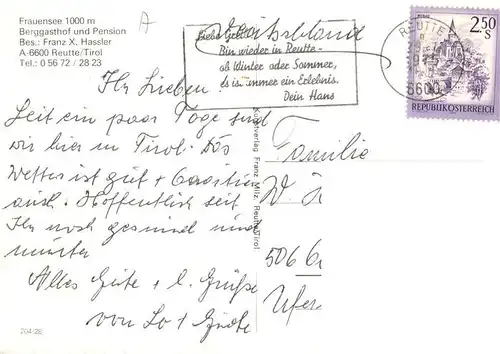 Frauensee 1000 m
Berggasthof und Pension
Bes.: Franz X. Hassler
A-6600 Reutte/Tirol
Tel.: 0 56 72 / 28 23
A
Ihr Lieben
Seit ein paar Tage sind
wir hier in Tirol. Das
Wetter ist gut +
auch. Hoffentlich seit
Ihr noch gesund und
munter
Alles Gute + l. Grüße
von Lo + Grete
204/26
Kunstverlag Franz Milz, Reutte/Tirol
Deutschland
Bin wieder in Reutte -
ob Winter oder Sommer,
es ist immer ein Erlebnis.
Dein Hans
REUTTE
6600
2.50
S
REPUBLIK ÖSTERREICH
Familie
W.
506
Ufer